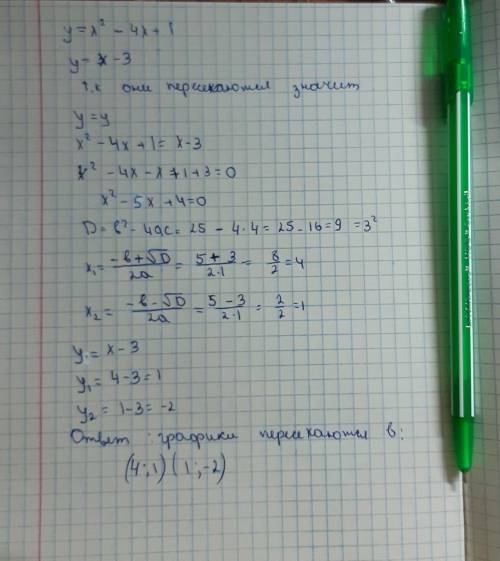 y = x² - 4x + 1
y = x - 3
т.к они пересекаются значит
y = y
x² - 4x + 1 = x - 3
x² - 4x - x + 1 + 3 = 0
x² - 5x + 4 = 0
D = b² - 4ac = 25 - 4·4 = 25 - 16 = 9 = 3²
x₁ = (-b + √D)/2a = (5 + 3)/2·1 = 8/2 = 4
x₂ = (-b - √D)/2a = (5 - 3)/2·1 = 2/2 = 1
y = x - 3
y₁ = 4 - 3 = 1
y₂ = 1 - 3 = -2
Ответ : графики пересекаются в:
(4; 1) (1; -2)